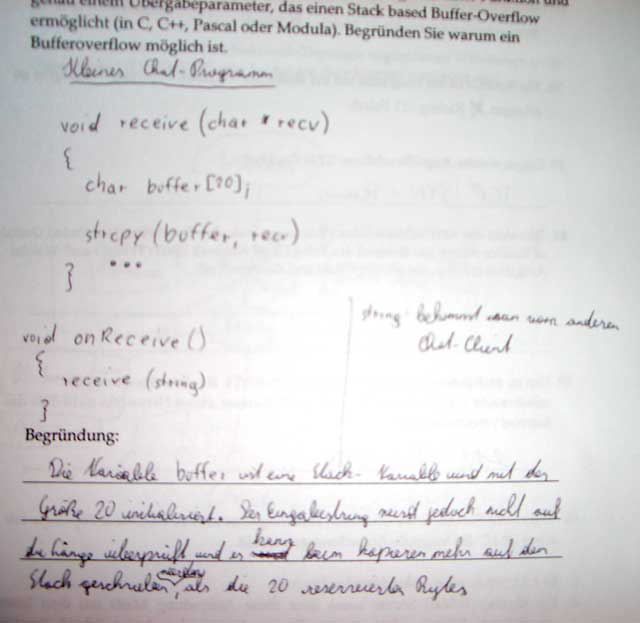 genau einem Übergabeparameter, das einen Stack based Buffer-Overflow
ermöglicht (in C, C++, Pascal oder Modula). Begründen Sie warum ein
Bufferoverflow möglich ist.
Kleines Chat-Programm
void receive (char * recv)
{
char buffer [20];
strcpy (buffer, recv)
...
}
string bekommt man vom anderen
Chat-Client
void onReceive ()
{
receive (string)
}
Begründung:
Die Variable buffer ist eine Stack-Variable und mit der
Größe 20 initialisiert. Der Eingabestring wird jedoch nicht auf
die Länge überprüft und es kann beim kopieren mehr auf den
Stack geschrieben werden, als die 20 reservierten Bytes